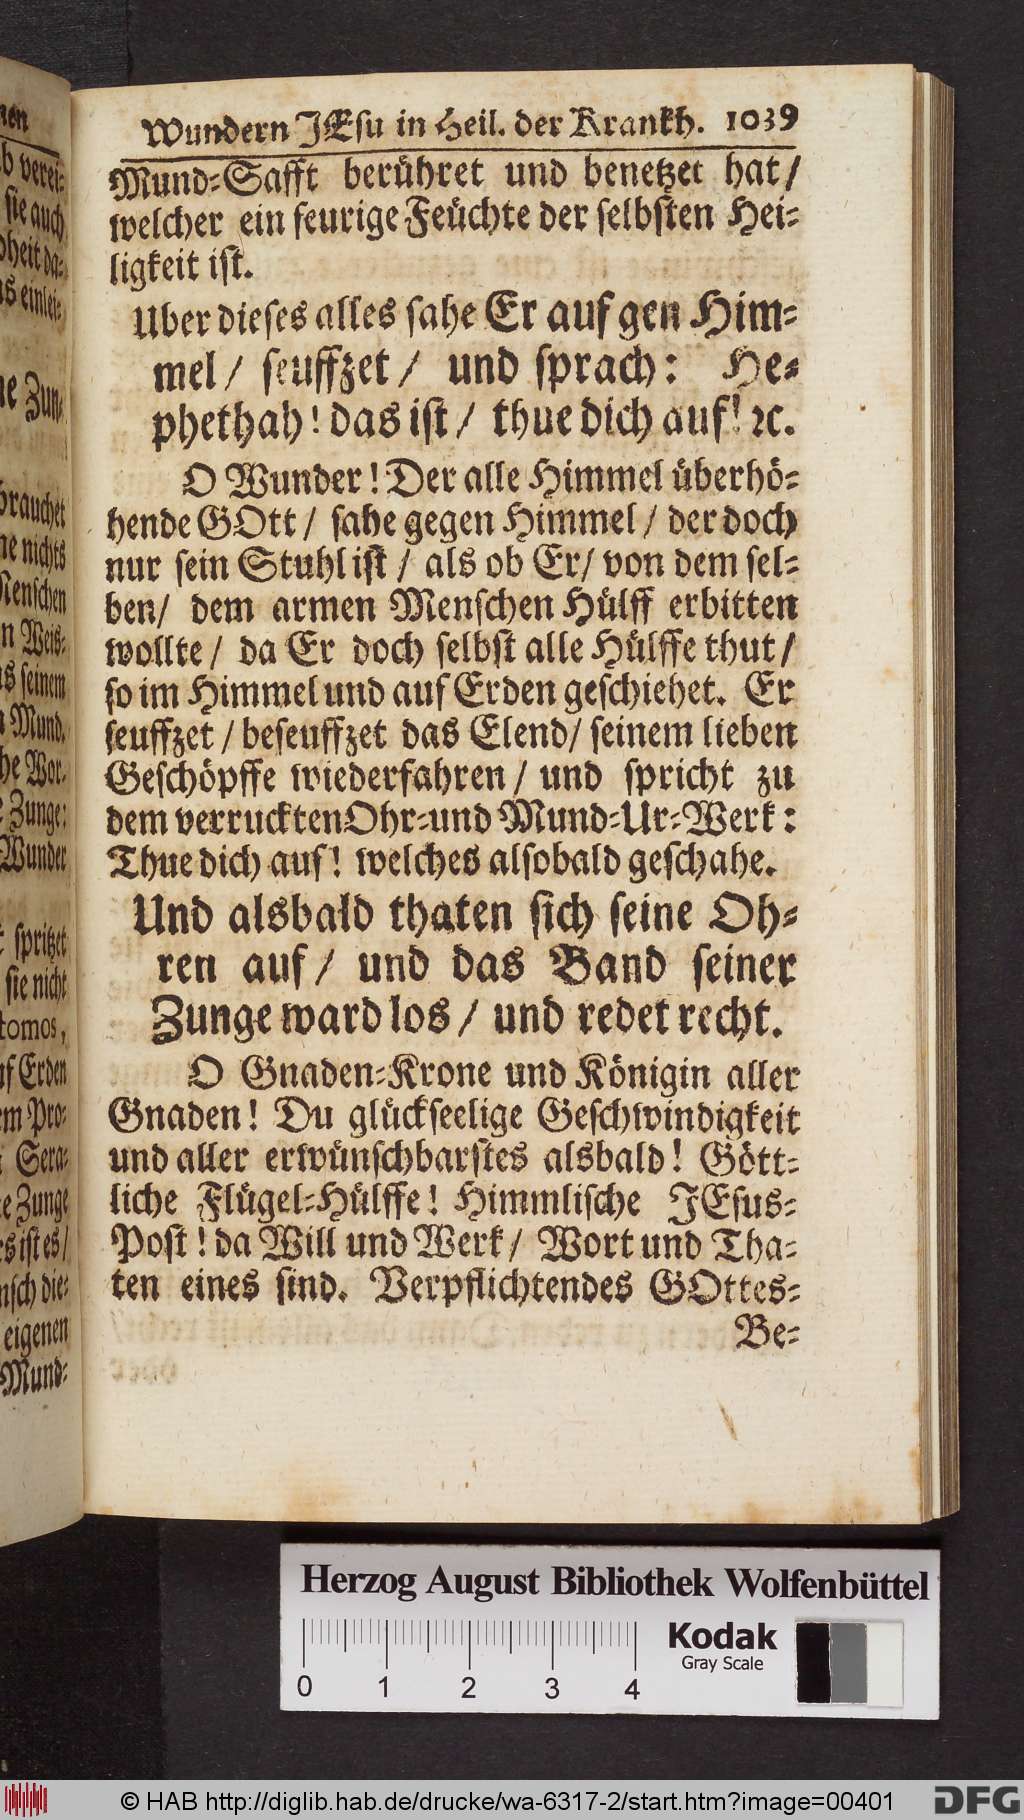 nen
b verei-
sie auch
oheit da-
as einlei-
ne Zun-
brauchet
ne nichts
Menschen
n Weis-
s seinem
Mund.
he Wor-
Zunge:
Wunder
spritzet
sie nicht
tomos,
uf Erden
em Pro-
Sera-
e Zunge
rs ist es/
nsch die-
eigenen
Mund-
Wundern JEsu in Heil. der Krankh. 1039
Mund-Safft berühret und benetzet hat/
welcher ein feurige Feüchte der selbsten Hei-
ligkeit ist.
Uber dieses alles sahe Er auf gen Him-
mel/ seuffzet/ und sprach: He-
phethah! das ist/ thue dich auf! ꝛc.
O Wunder! Der alle Himmel überhö-
hende GOtt/ sahe gegen Himmel/ der doch
nur sein Stuhl ist/ als ob Er/ von dem sel-
ben/ dem armen Menschen Hülff erbitten
wollte/ da Er doch selbst alle Hülffe thut/
so im Himmel und auf Erden geschiehet. Er
seuffzet/ beseuffzet das Elend/ seinem lieben
Geschöpffe wiederfahren/ und spricht zu
dem verruckten Ohr-und Mund-Ur-Werk:
Thue dich auf! welches alsobald geschahe.
Und alsbald thaten sich seine Oh-
ren auf/ und das Band seiner
Zunge ward los/ und redet recht.
O Gnaden-Krone und Königin aller
Gnaden! Du glückseelige Geschwindigkeit
und aller erwünschbarstes alsbald! Gött-
liche Flügel-Hülffe! Himmlische JEsus-
Post! da Will und Werk/ Wort und Tha-
ten eines sind. Verpflichtendes GOttes-
Be-
Herzog August Bibliothek Wolfenbüttel
Kodak
Gray Scale
0 1 2 3 4
© HAB http://diglib.hab.de/drucke/wa-6317-2/start.htm?image=00401
DFG